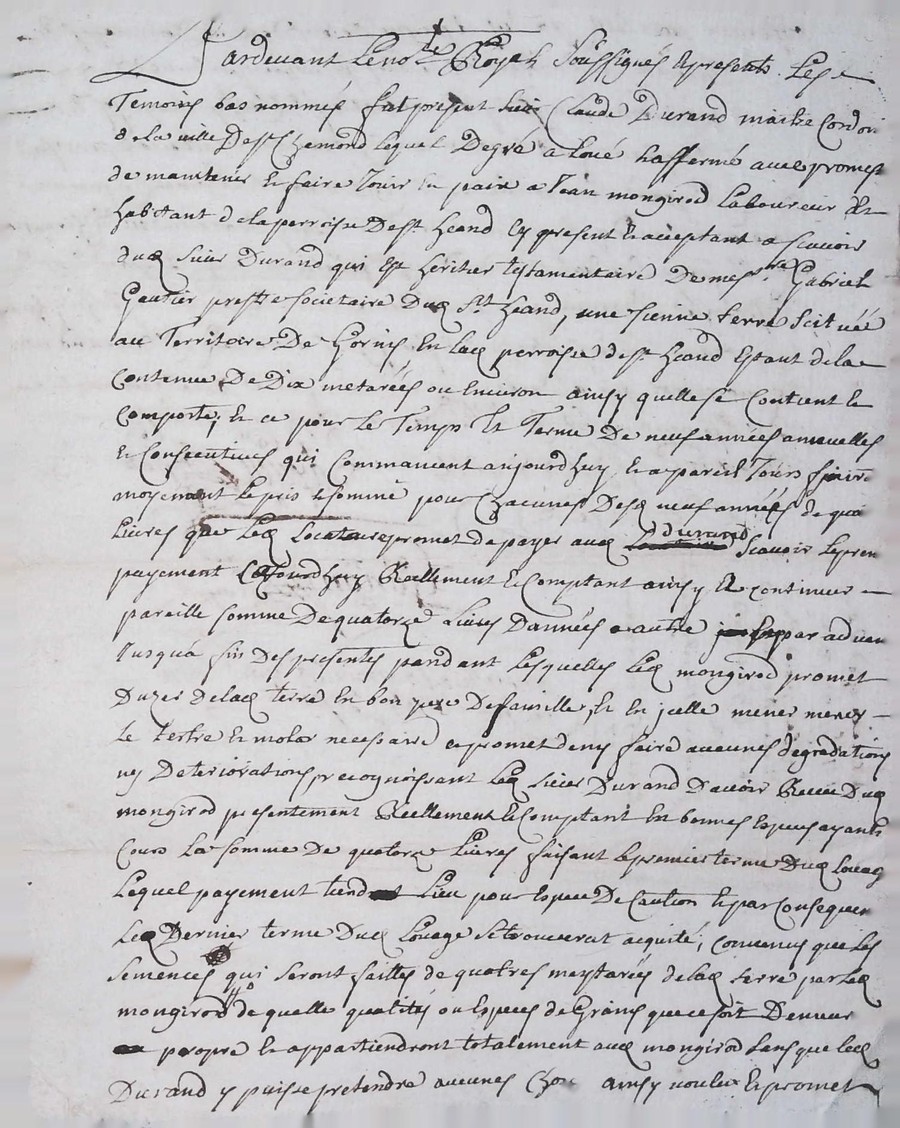 Pardevant Le no.re Royal Soussignés & presents Les
Temoins bas nommés fut present sieur Claude Durand maitre Cordon
de la ville De St Chamond lequel Degré a Loué & affermé avec promes
de maintenir & faire Jouir en paix a Jean mongirod Laboureur &
habitant de la perroise De St heand Cy present & acceptant a scavoir
dud sieur Durand qui est heritier testamentaire De mess.re Gabriel
Gautier prestre societaire Dud St heand, une sienne terre scituée
au Territoire De Gornis En lad perroise de St heand Estant de la
Contenue De Dix metarées ou Environ ainsy quelle se Contient &
Comporte, & ce pour Le Temps Et Terme De neuf années annuelles
& Consecutives qui Commancent aujourdhuy & a pareil Jours finir
moyenant le pris & somme pour Chacunes Desd neuf années de qua
Livres que Led Locataire promet de payer aud durand Scavoir le pren
payement Cejourdhuy Reellement & Comptant ainsy & continuer
pareille somme De quatorze Livres Dannées a autre par advan
Jusqua fin Des presentes pandant Lesquelles Led mongirod promet
Duzer de lad terre En bon pere De famille, & En jcelle mener
le Tertre & molar necessaire & promet de ny faire aucunes degradations
ny Deteriorations recognoissant Led sieur Durand Davoir Receu Dud
mongirod presentement Reellement & Comptant En bonnes Especes ayants
Cours La somme De quatorze Livres faisant le premier terme Dud Louage
Lequel payement tiend Lieu pour Espece De Caution & par Consequen
Led Dernier terme Dud Louage se trouverat acquité, Convenus que Les
semences qui seront faittes de quatres meytarées de lad terre par Led
mongirod de quelle qualités ou Especes de Grains que ce soit Demeur
propre & appartiendront totalement aud mongirod sans que led
Durand y puisse pretendre aucunes Choze ainsy voulu & promet